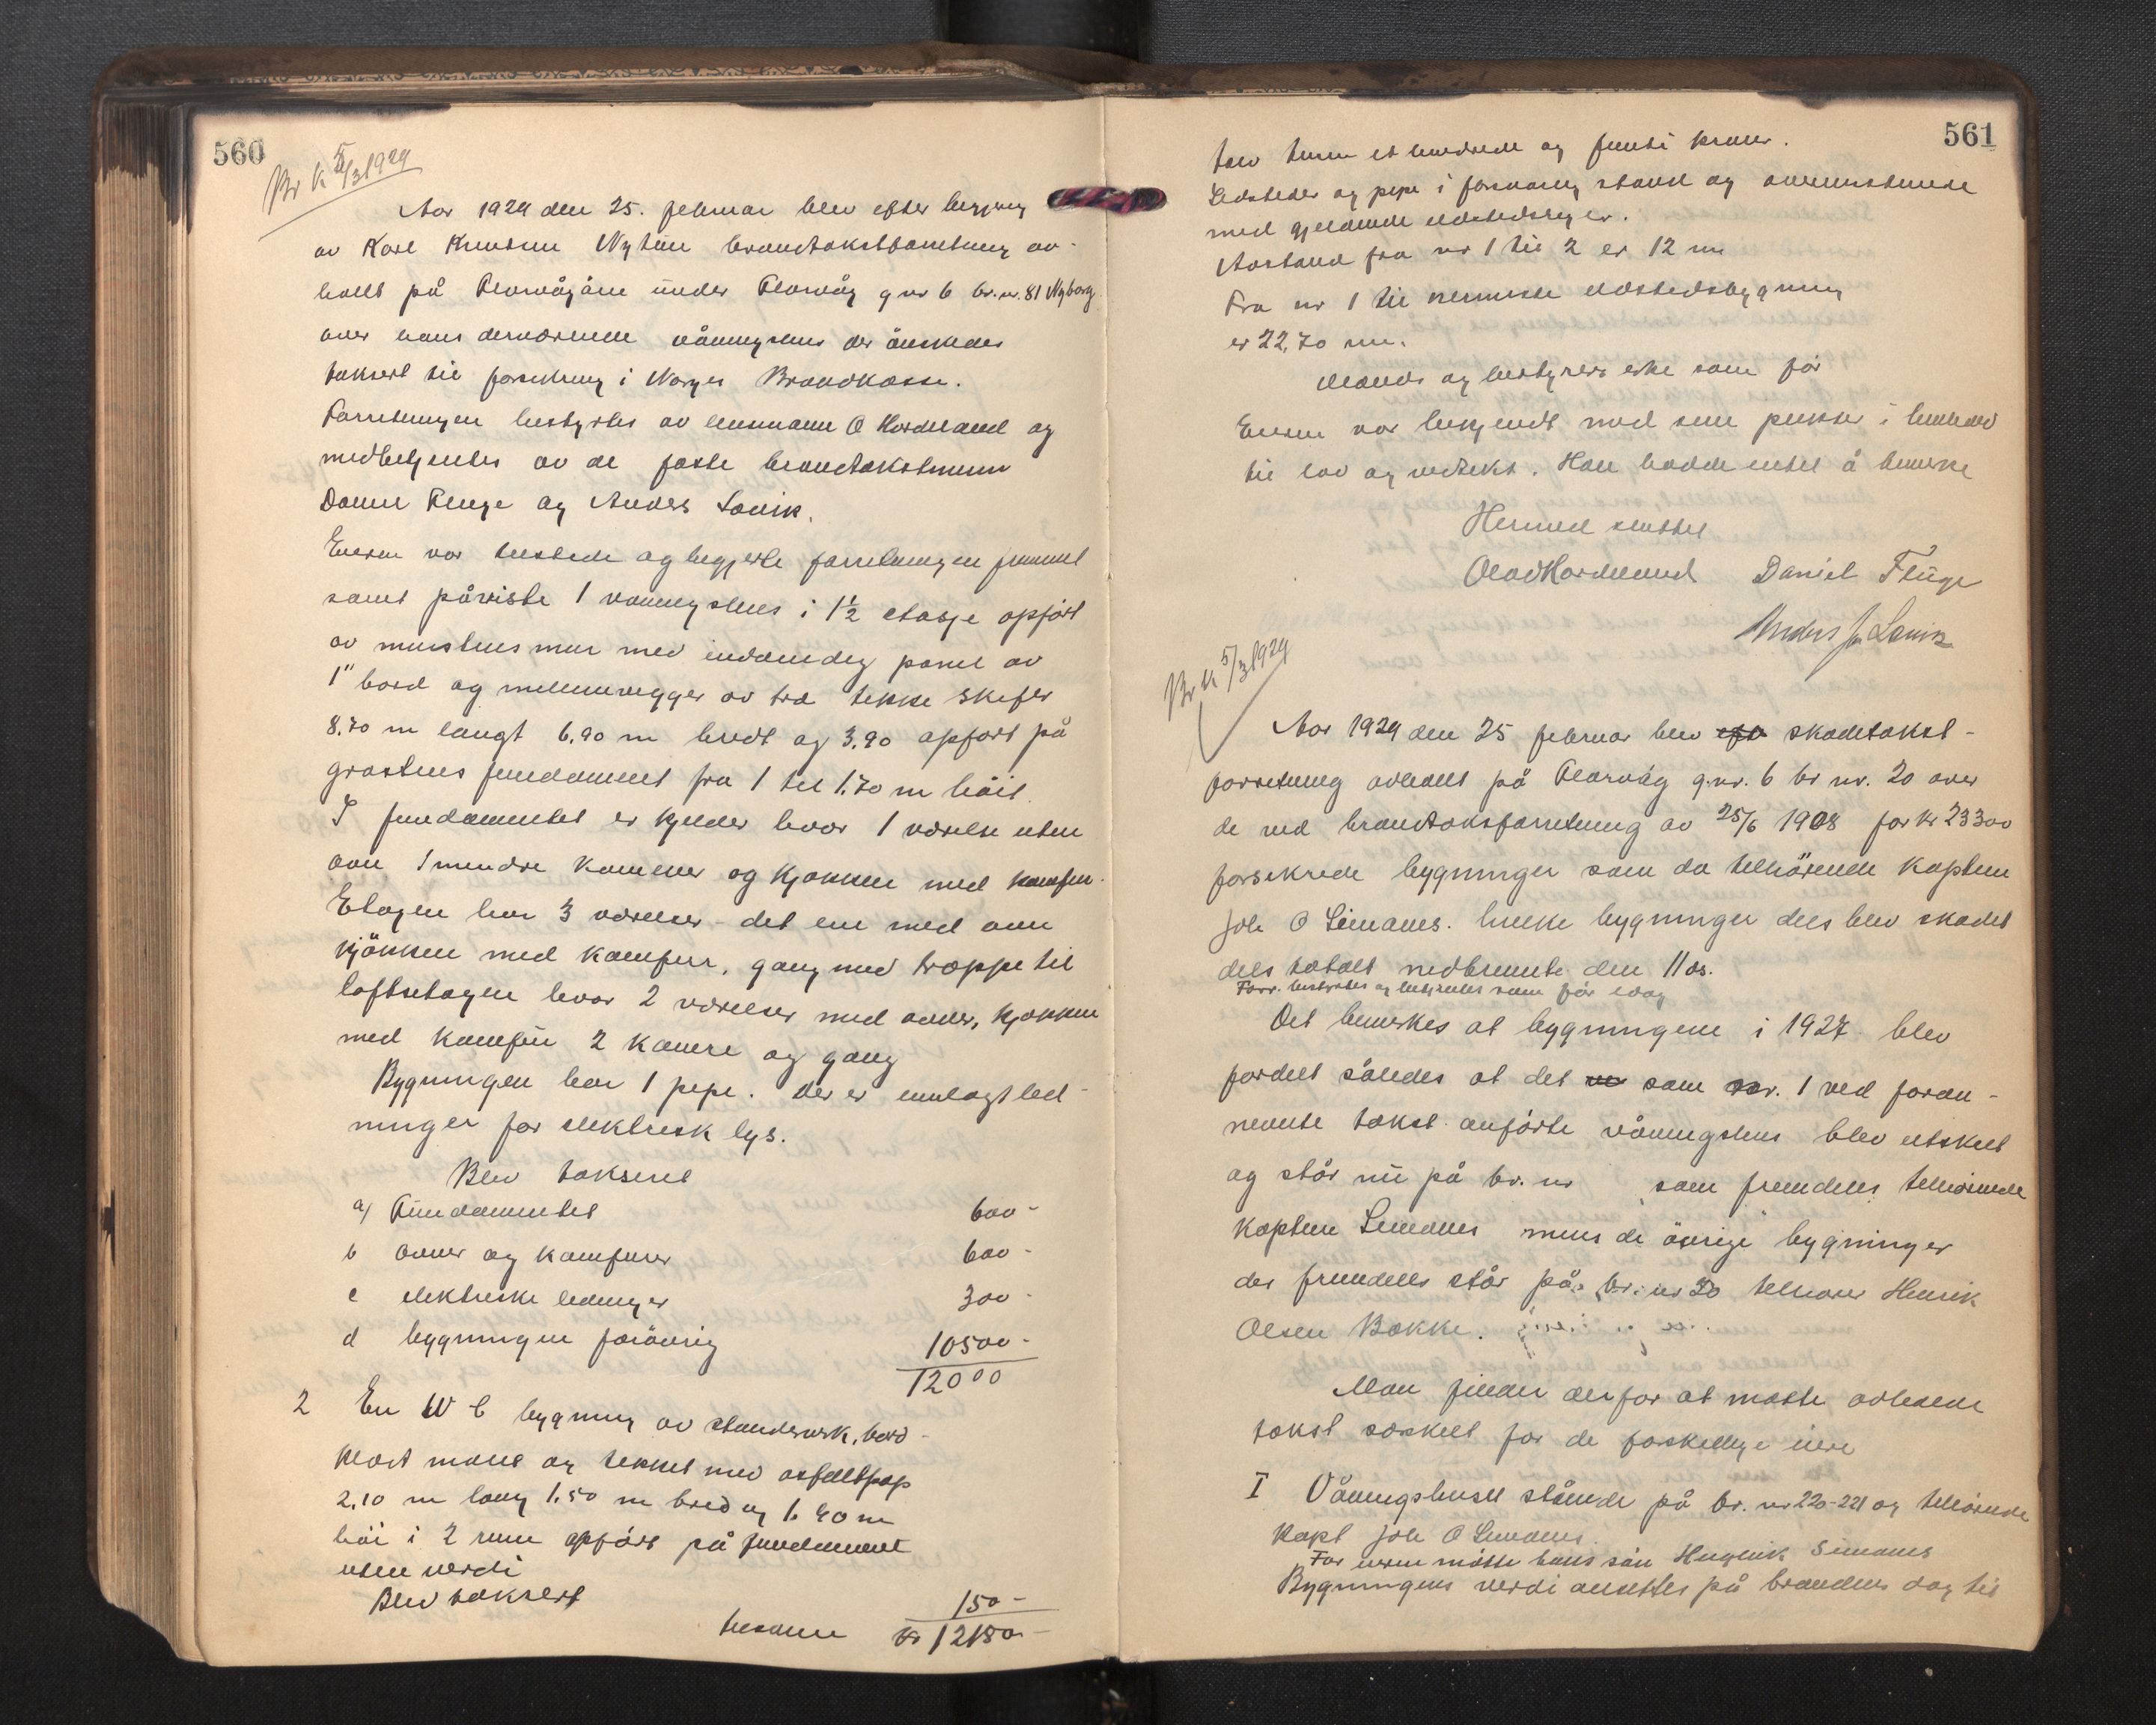 560
Br k 5/3 1929
Aar 1929 den 25. februar blev efter begjæring
av Karl Knutsen Nytun brandtakstforretning av-
holdt på Florvågøen under Florvåg g nr 6 br. nr. 81 Nyborg
over hans derværende våningshus der ønskedes
taksert til forsikring i Norges Brandkasse.
Forretningen bestyrtes av lensmann O Hordeland og
medbetjentes av de faste brandtakstmenn
Daniel Fluge og Anders Lønik.
Eieren var tilstede og begjerte forretningen fremmet
samt påviste 1 vaaningshus i 1½ etasje opført
av murstens mur med indvendig panel av
1" bord og mellemvegger av træ tekke skifer
8.70 m langt 6.90 m bredt og 3.90 opført på
gråstens fundament fra 1 til 1.70 m höit.
I fundamentet er kjelder hvor 1 værelse uten
ovn 1 mindre kammer og kjøkken med komfur.
Etagen har 3 værelser - det ene med ovn
kjökken med komfur, gang med trappe til
loftsetagen hvor 2 værelser med ovner, kjøkken
med komfür 2 kamre og gang
Bygningen har 1 pipe. Der er innlagt led-
ninger for elektrisk lys.
Blev taksert
a) Fundamentet 600 -
b ovner og komfurer 600 -
c elektriske ledninger 300 -
d bygningen forövrig 10500 -
12000
2 En W C bygning av stenderverk, bord-
klædt malt og tekket med asfaltpap
2,10 m lang 1.50 m bred og 1.90 m
höi i 2 rum opført på fundament
uten verdi
Blev taksert 150 -
tilsammen kr 12150 -
561
tolv tusen et hundrede og femti kroner.
Ildsteder og pipe i forsvarlig stand og overensstemmende
med gjeldende ildstedsregler.
Avstand fra nr 1 til 2 er 12 m
Fra nr 1 til nermeste ildstedsbygning
er 22,70 m.
Mands og bestyrers eske som før
Eieren var bekjendt med sine plikter i henhold
til lov og vedtekt. Han hadde intet å bemerke
Hermed sluttet
Olav Hordeland Daniel Flüge
Anders J. Lønik
Br k 5/3 1929
Aar 1929 den 25 februar blev skadetakst-
forretning avholdt på Florvåg g.nr. 6 br nr. 20 over
de ved brandtakstforretning av 25/6 1908 for kr 23300
forsikrede bygninger som da tilhörende kaptein
Joh O Simones. hvilke bygninger dels blev skadet
dels totalt nedbrendte den 11 ds.
Forr. bestyrtes og betjentes som før idag
Det bemerkes at bygningene i 1927 blev
fordelt således at det som nr. 1 ved foran-
nevnte takst anförte våningshus blev utskilt
og står nü på br. nr som fremdeles tilhörende
kaptein Simones mens de øvrige bygninger
der fremdeles står på br. nr 20 tilhører Henrik
Olsen Bakke.
Man finder derfor at måtte avholde
takst særskilt for de forskellige eiere
I Våningshuset stående på br. nr 220-221 og tilhörende
Kapt Joh O Simones
For eieren mötte hans sön Simones
Bygningens verdi ansettes på brandens dag til